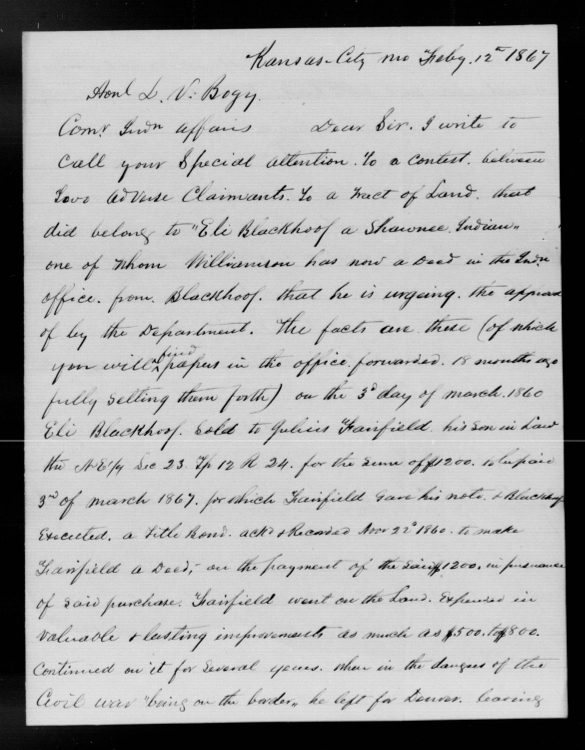 Kansas-City Mo Feby. 12th 1867
Honl L. V. Bogy.
Comr Indn affairs Dear Sir. I write to
Call your Special attention. To a Contest. between
Two adverse Claimants. To a Tract of Land. that
did belong to "Eli Blackhoof a Shawnee Indian"
one of whom Williamson has now a Deed in the Indn
office. from Blackhoof. that he is urging. the approval
of by the Department. The facts are these (of which
you will find papers in the office forwarded. 18 months ago
fully setting them forth) on the 3d day of march. 1860
Eli Blackhoof. Sold to Julius Fairfield, his Son in Law
the N.E./4 Sec 23. Tp 12 R 24. for the Sum of $1200. to be paid
3rd of march 1867. for which Fairfield Gave his note. & Blackhoof
Executed. a Title Bond. ackd & Recorded Novr 22d 1860. to make
Fairfield a Deed,- on the payment of the Said $1200. in pursuance
of said purchase. Fairfield went on the Land. Expended in
Valuable & lasting improvements as much as $500. to $800.
Continued on it for Several years. when in the dangers of the
Civil war "being on the border" he left for Denver. leaving